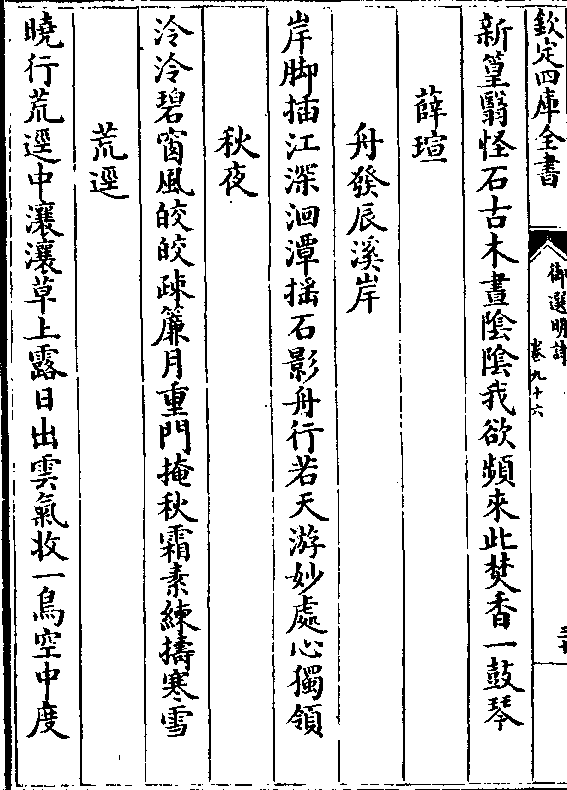 欽定四庫全書
御選明詩
卷九十六
新篁翳怪石古木晝陰陰我欲頻來此焚香一鼓琴
薛瑄
舟發辰溪岸
岸脚插江深洄潭揺石影舟行若天游妙處心獨領
秋夜
泠泠碧窗風皎皎疎簾月重門掩秋霜素練擣寒雪
荒逕
曉行荒逕中瀼瀼草上露日出雲氣收一鳥空中度